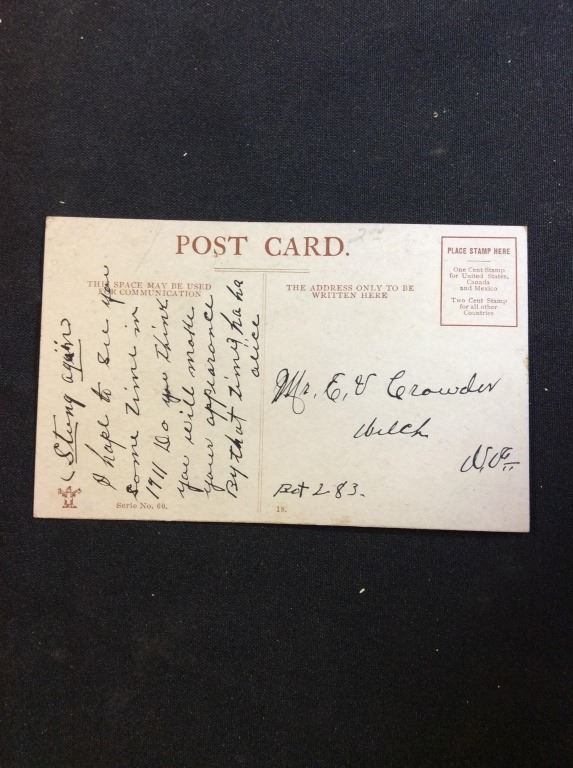 POST CARD.
THIS SPACE MAY BE USED
FOR COMMUNICATION
THE ADDRESS ONLY TO BE
WRITTEN HERE
PLACE STAMP HERE
One Cent Stamp
for United States,
Canada
and Mexico
Two Cent Stamp
for all other
Countries
Stung again
I hope to see you
some time in
1911 Do you think
you will make
your appearance
By that time ha ha
alice
Mr. E, V Crowder
Welch
Box 283.
Serie No. 60.
18.